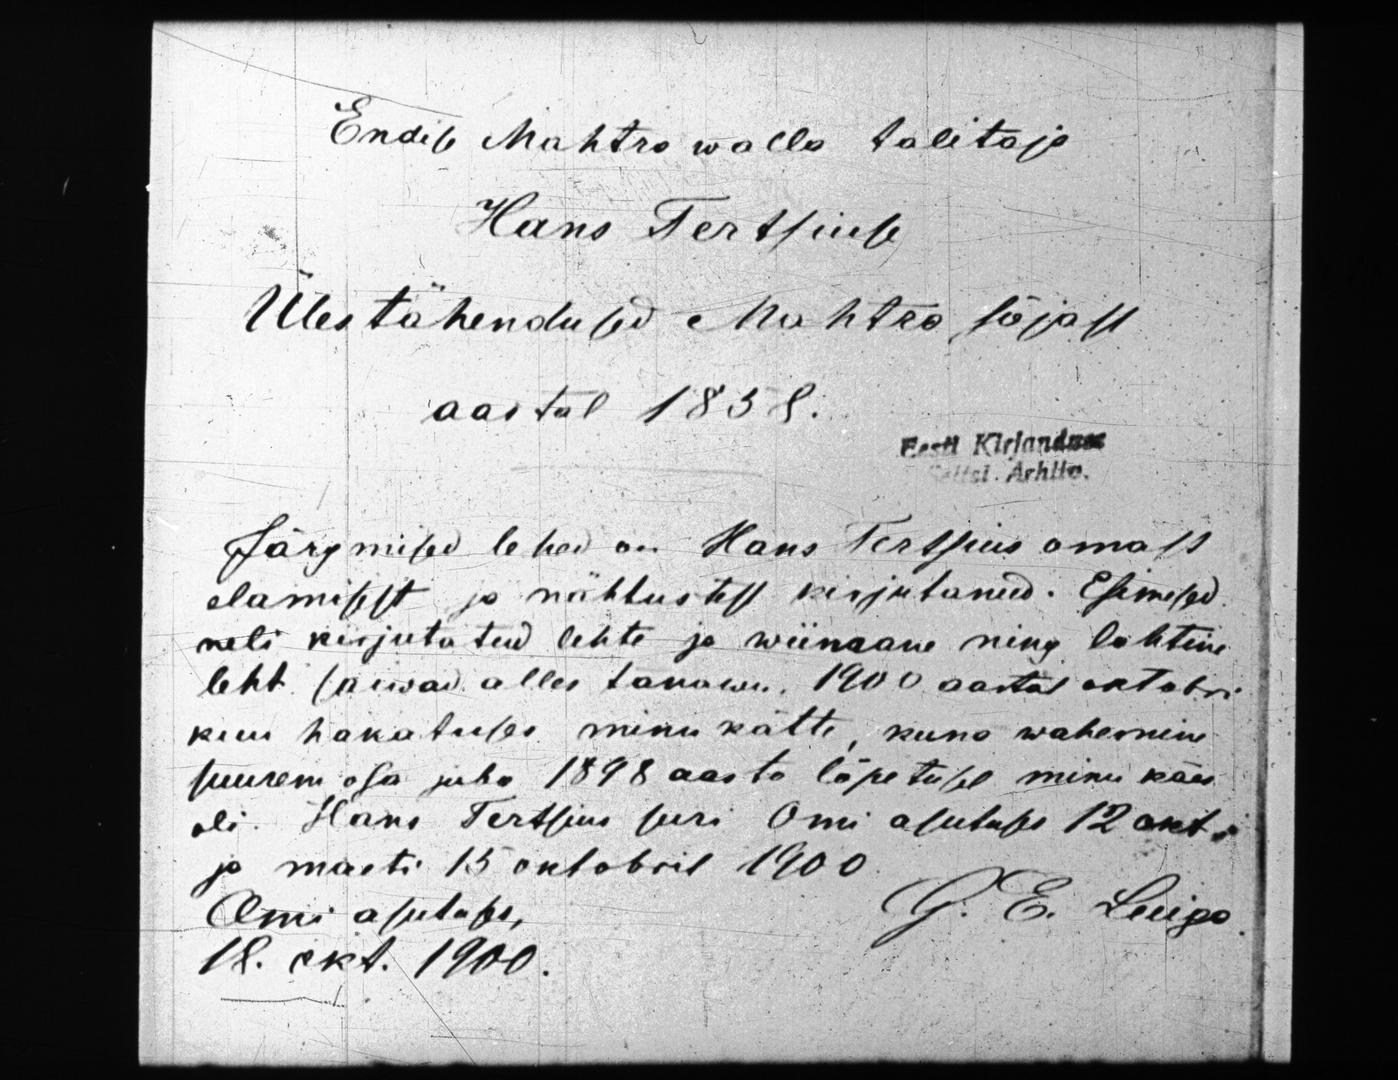 Endise Mahtra walla talitaja
Hans Tertsiuse
Ülestähendused Mahtra sõjast
aastal 1858.
Eesti Kirjanduse
Seltsi Arhiiv.
Järgmised lehed on Hans Tertsius omast
elamisest ja nähtustest kirjutanud. Esimesed
neli kirjutatud lehte ja wiimane ning lahtine
leht saiwad alles tänawu, 1900 aastal oktobri
kuu hakatuses minu kätte, kuna wahemine
suurem osa juba 1898 aasta lõpetusel minu käes
oli. Hans Tertsius suri Omi asutuses 12 okt.
ja maeti 15 oktobril 1900
Omi asutuses,
18. okt. 1900.
G. E. Luiga.